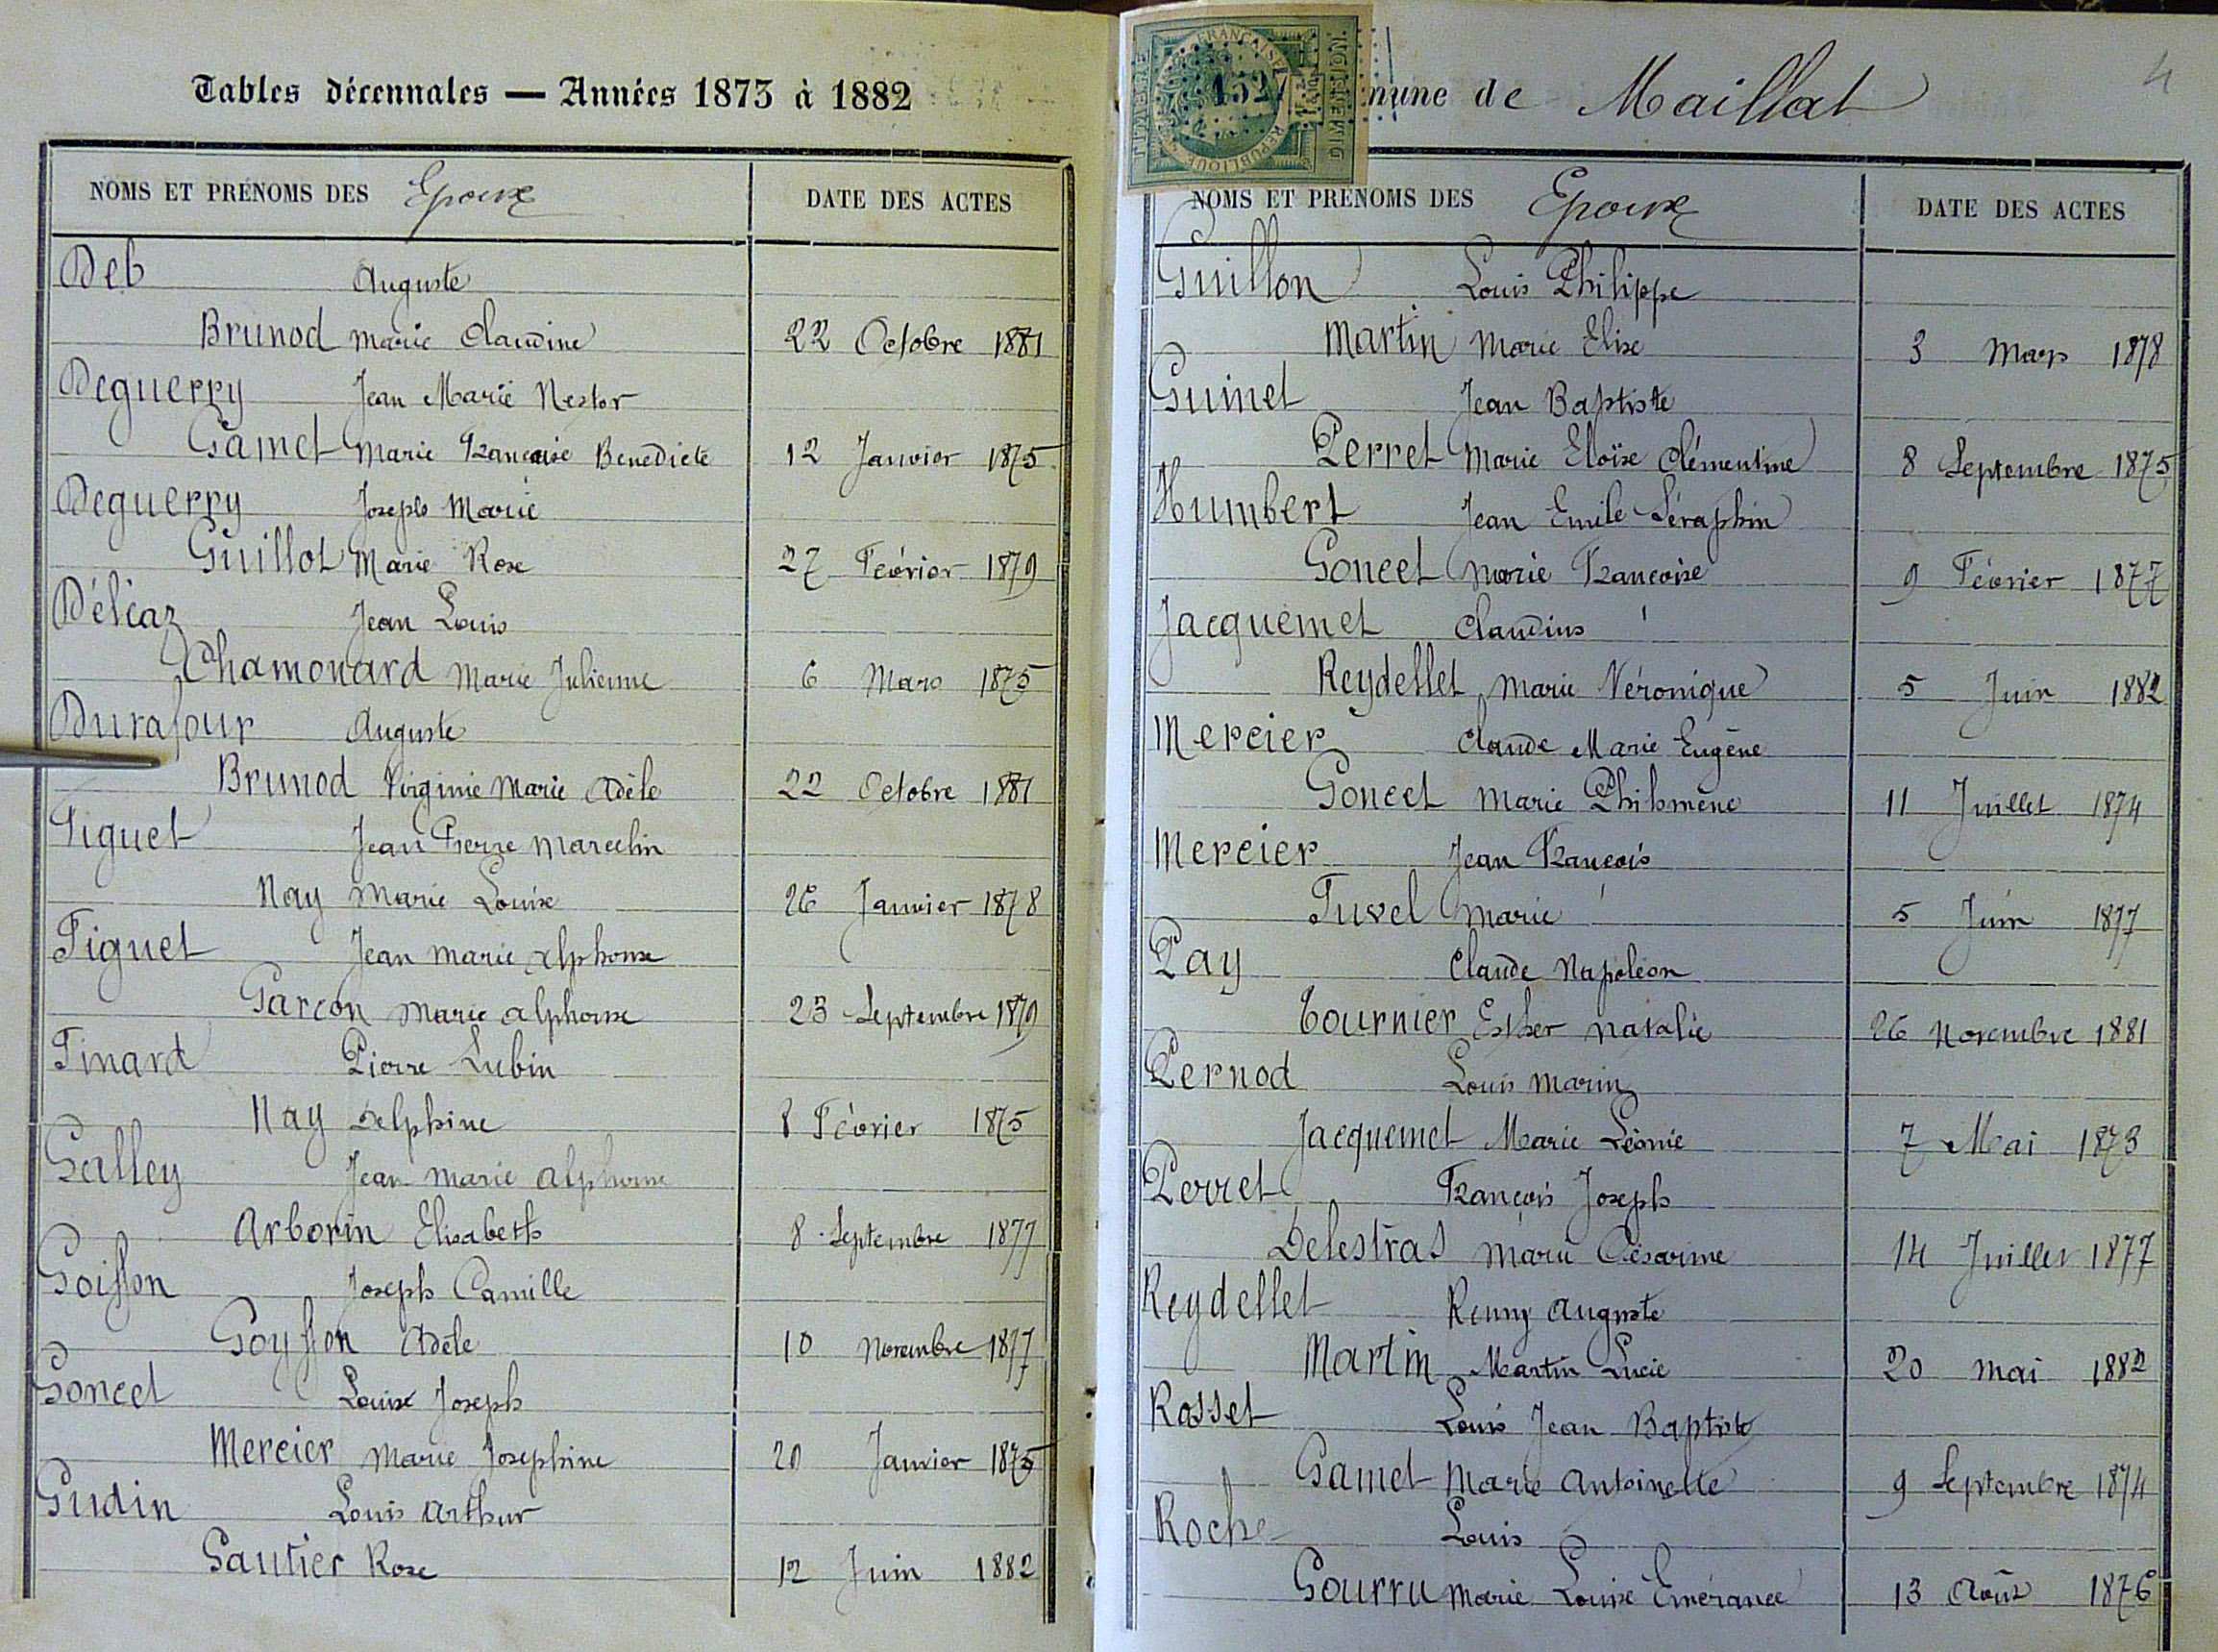 Tables décennales — Années 1873 à 1882
NOMS ET PRÉNOMS DES Epoux DATE DES ACTES
Deb Auguste
Brunod Marie Claudine 22 Octobre 1881
Deguerry Jean Marie Nestor
Gamet Marie Francoise Benedicte 12 Janvier 1875
Deguerry Joseph Marie
Guillot Marie Rose 27 Février 1879
Déléaz Jean Louis
Chamonard Marie Julienne 6 Mars 1875
Durafour Auguste
Brunod Virginie Marie Adèle 22 Octobre 1881
Figuet Jean Pierre Marcelin
Nay Marie Louise 26 Janvier 1878
Figuet Jean Marie Alphonse
Garcon Marie Alphonse 23 Septembre 1879
Finard Pierre Lubin
Nay Delphine 8 Février 1875
Galley Jean Marie Alphonse
Arborin Elisabeth 8 Septembre 1877
Goiffon Joseph Camille
Goyffon Adèle 10 Novembre 1877
Goncet Louise Joseph
Mercier Marie Josephine 20 Janvier 1875
Gudin Louis Arthur
Gautier Rose 12 Juin 1882
TIMBRE FRANÇAISE RÉPUBLIQUE 1527
mune de Maillat
4
NOMS ET PRÉNOMS DES Epoux DATE DES ACTES
Guillon Louis Philippe
Martin Marie Elise 3 Mars 1878
Guinet Jean Baptiste
Perret Marie Eloïse Clémentine 8 Septembre 1875
Humbert Jean Emile Séraphin
Goncet Marie Francoise 9 Février 1877
Jacquemet Claudius
Reydellet Marie Véronique 5 Juin 1882
Mercier Claude Marie Eugène
Goncet Marie Philomène 11 Juillet 1874
Mercier Jean Francois
Tuvel Marie 5 Juin 1877
Pay Claude Napoléon
Tournier Esther Natalie 26 Novembre 1881
Pernod Louis Marin
Jacquemet Marie Léonie 7 Mai 1873
Perret François Joseph
Delestras Marie Césarine 14 Juillet 1877
Reydellet Remy Auguste
Martin Martin Lucie 20 Mai 1882
Rosset Louis Jean Baptiste
Gamet Marie Antoinette 9 Septembre 1874
Roche Louis
Gourru Marie Louise Emérance 13 Août 1876